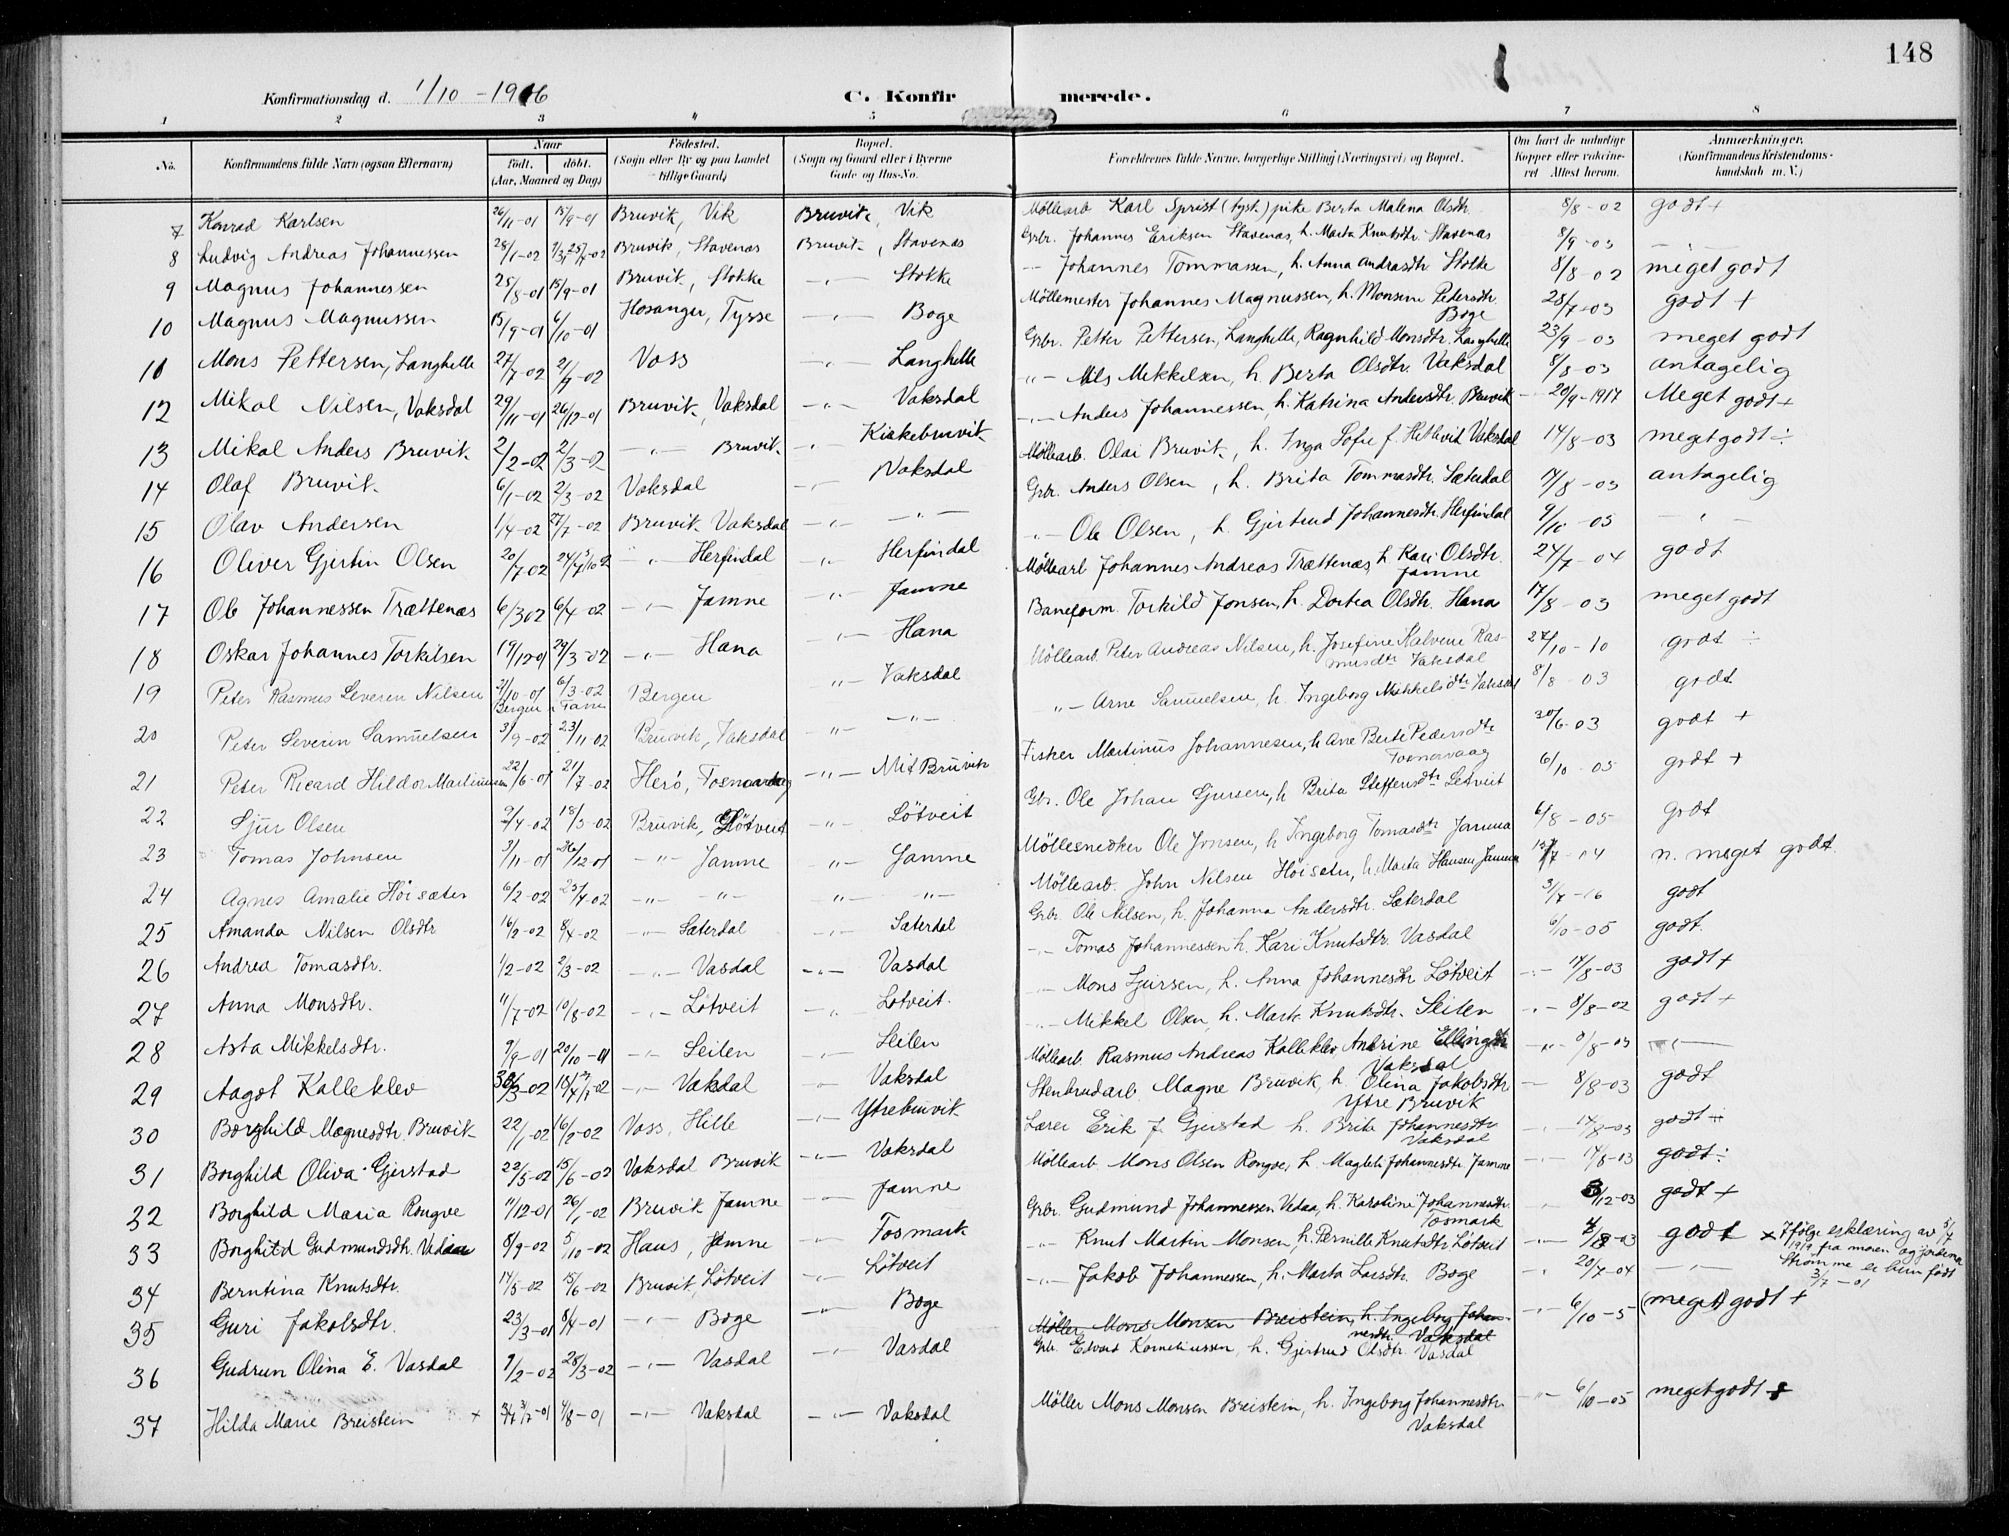 148
Konfirmationsdag d. 1/10 - 1916
C. Konfirmerede.
1 2 3 4 5 6 7 8
No. Konfirmandens fulde Navn (ogsaa Efternavn) Naar født. døbt. (Aar, Maaned og Dag) Fødested. (Sogn eller By og paa Landet tillige Gaard) Bopæl. (Sogn og Gaard eller i Byerne Gade og Hus-No. Forældrenes fulde Navne, borgerlige Stilling (Næringsvei) og Bopæl. Om havt de naturlige Kopper eller vaksineret Attest herom. Anmærkninger. (Konfirmandens Kristendomskundskab m. V.)
7 Konrad Karlsen 26/11-01 15/9-01 Bruvik, Vik Bruvik, Vik Möllearb Karl Sprist (tysk) pike Berta Malena Olsdtr. 8/8-02 godt +
8 Ludvig Andreas Johannessen 28/1-02 Bruvik, Stavenes Bruvik, Stavenæs Grbr. Johannes Eriksen Stavenæs, h. Marta Knutsdtr. Stavenæs 8/9-03 —„—
9 Magnus Johannessen 25/8-01 15/9-01 Bruvik, Stokke —„— Stokke — Johannes Tommassen, h. Anna Andrasdtr Stokke 8/8-02 meget godt
10 Magnus Magnussen 15/9-01 6/10-01 Hosanger, Tysse —„— Boge Möllemester Johannes Magnussen, h. Monsine Pedersdtr. Boge 28/7-03 godt +
11 Mons Pettersen, Langhelle 27/7-02 2/7-02 Voss —„— Langhelle Grbr. Petter Pettersen, Langhelle, Ragnhild Monsdtr. Langhelle 23/9-03 meget godt
12 Mikal Nilsen, Vaksdal 29/11-01 26/12-01 Bruvik, Vaksdal —„— Vaksdal „— Nils Mikkelsen, h Berta Olsdtr. Vaksdal 8/8-03 antagelig
13 Mikal Anders Bruvik 2/2-02 2/3-02 —„— Bruvik —„— Kirkebruvik „— Anders Johannessen, h. Katrina Andersdtr. Bruvik 20/9-1917 Meget godt +
14 Olaf Bruvik 6/1-02 2/3-02 Vaksdal —„— Vaksdal Möllearb. Olai Bruvik, h. Inga Sofie f. Vaksdal 14/8-03 meget godt ÷
15 Olav Andersen 1/4-02 27/7-02 Bruvik Vaksdal —„— —„— Grbr. Anders Olsen, h. Brita Tommasdtr. Sæterdal 14/8-03 antagelig
16 Oliver Gjertin Olsen 20/7-02 —„— Herfindal —„— Herfindal „— Ole Olsen, h. Gjertrud Johannesdtr. Herfindal 9/10-05 —„—
17 Ole Johannessen Trættenæs 6/3 02 6/4-02 —„— Jamne —„— Jamne Möllearb Johannes Andreas Trættenæs, h Kari Olsdtr. Jamne 27/7-04 godt
18 Oskar Johannes Torkilsen 19/12-01 29/3-02 —„— Hana —„— Hana Baneform. Torkild Jonsen, h. Dortea Olsdtr. Hana 17/8-03 meget godt
19 Peter Rasmus Severin Nilsen 21/10-01 6/3-02 Bergen „— Vaksdal Möllearb. Peter Andreas Nilsen, h. Josefine Kalvene Rasmusdtr Vaksdal 27/10-10 godt ÷
20 Peter Severin Samuelsen 3/9-02 23/11-02 Bruvik, Vaksdal „— —„— „— Arne Samuelsen, h. Ingeborg Mikkelsdtr Vaksdal 8/8-03 godt
21 Peter Ricard Hildor Martinussen 22/6-01 21/7-02 Herö, Tosnavaag —„— Mit Bruvik Fisker Martinus Johannesen, h Ane Berte Pedersdtr Tosnavaag 30/6-03 godt +
22 Sjur Olsen 2/4-02 18/5-02 Bruvik, Lötveit „— Lötveit Gbr. Ole Johan Sjursen, h Brita Steffensdtr Lötveit 6/10-05 godt +
23 Tomas Johnsen 3/11-01 26/12-01 —„— Jamne „— Jamne Möllesnedker Ole Jonsen, h Ingeborg Tomasdtr Jamna 6/8-05 godt
24 Agnes Amalie Höisæter 6/2-02 25/4-02 —„— —„— „— „— Möllearb. John Nilsen Höisæter, h. Marta Hansen Jamne 7-04 n. meget godt
25 Amanda Nilsen Olsdtr 16/2-02 8/4-02 —„— Sæterdal —„— Sæterdal Grbr. Ole Nilsen, h. Johanna Andersdtr. Sæterdal 3/7-16 godt
26 Andrea Tomasdtr. 1/2-02 2/3-02 —„— Vasdal —„— Vasdal —„— Tomas Johannessen h. Kari Knutsdtr. Vasdal 6/10-05 godt.
27 Anna Monsdtr. 11/7-02 10/8-02 —„— Lötveit —„— Lötveit —„— Mons Sjursen, h. Anna Johannesdtr Lötveit —„— 14/8-03 godt +
28 Asta Mikkelsdtr. 9/9-01 20/10-01 —„— Seilen —„— Seilen —„— Mikkel Olsen, h. Marte Knutsdtr. Seilen —„— 8/8-02 godt +
29 Aagot Kalleklev —„— Vakdal „— Vaksdal Möllearb. Rasmus Andreas Kalleklev, Andrine Ellingsdtr Vaksdal —„— 8/8-03 —„—
30 Borghild Magnesdtr. Bruvik 22/1-02 16/2-02 Voss, Hille —„— Ytrebruvik Stenbrudarb. Magne Bruvik, h. Olina Jakobsdtr. Ytre Bruvik — 8/8-03 godt
31 Borghild Oliva Gjerstad 22/5-02 15/6-02 Vaksdal Bruvik —„— Vaksdal Lærer Erik J. Gjerstad h. Brita Johannesdtr Vaksdal —„— 14/8-03 godt ÷
32 Borghild Maria Rongve 11/12-01 26/1-02 Bruvik Jamne —„— Jamne Möllearb Mons Olsen Rongve, h. Magteli Johannesdtr. Jamne —„— 14/8-03 godt ÷
33 Borghild Gudmundsdtr. Vedaa 8/9-02 5/10-02 Haus, Jamne —„— Fosmark Grbr. Gudmund Johannessen Vedaa, h. Karoline Johannesdtr. Fosmark „ 5/12-03 godt +
34 Berntina Knutsdtr. 14/5-02 15/6-02 Bruvik, Lötveit —„— Lötveit —„— Knut Martin Monsen, h. Pernille Knutsdtr Lötveit —„— godt × Ifølge erklæring av 5/7 1919 fra moren og jordema Strömme er hun født 3/7-01
35 Guri Jakobsdtr. 23/3-01 8/4-01 —„— Boge —„— Boge —„— Jakob Johannessen, h. Marta Larsdtr. Boge —„— 20/7-04 —„—
Möller Mons Monsen Breistein, h. Ingeborg Johannesdtr. Vaksdal
36 Gudrun Olina E. Vasdal 9/2-02 28/3-02 —„— Vasdal —„— Vasdal Grbr. Edvard Korneliussen, h. Gjertrud Olsdtr. Vasdal —„— 6/10-5 (meget) godt +
37 Hilda Marie Breistein × 3/7-01 4/8-01 —„— Vaksdal —„— Vaksdal Möller Mons Monsen Breistein, h. Ingeborg Johannesdtr. Vaksdal —„— 6/10-05 meget godt +